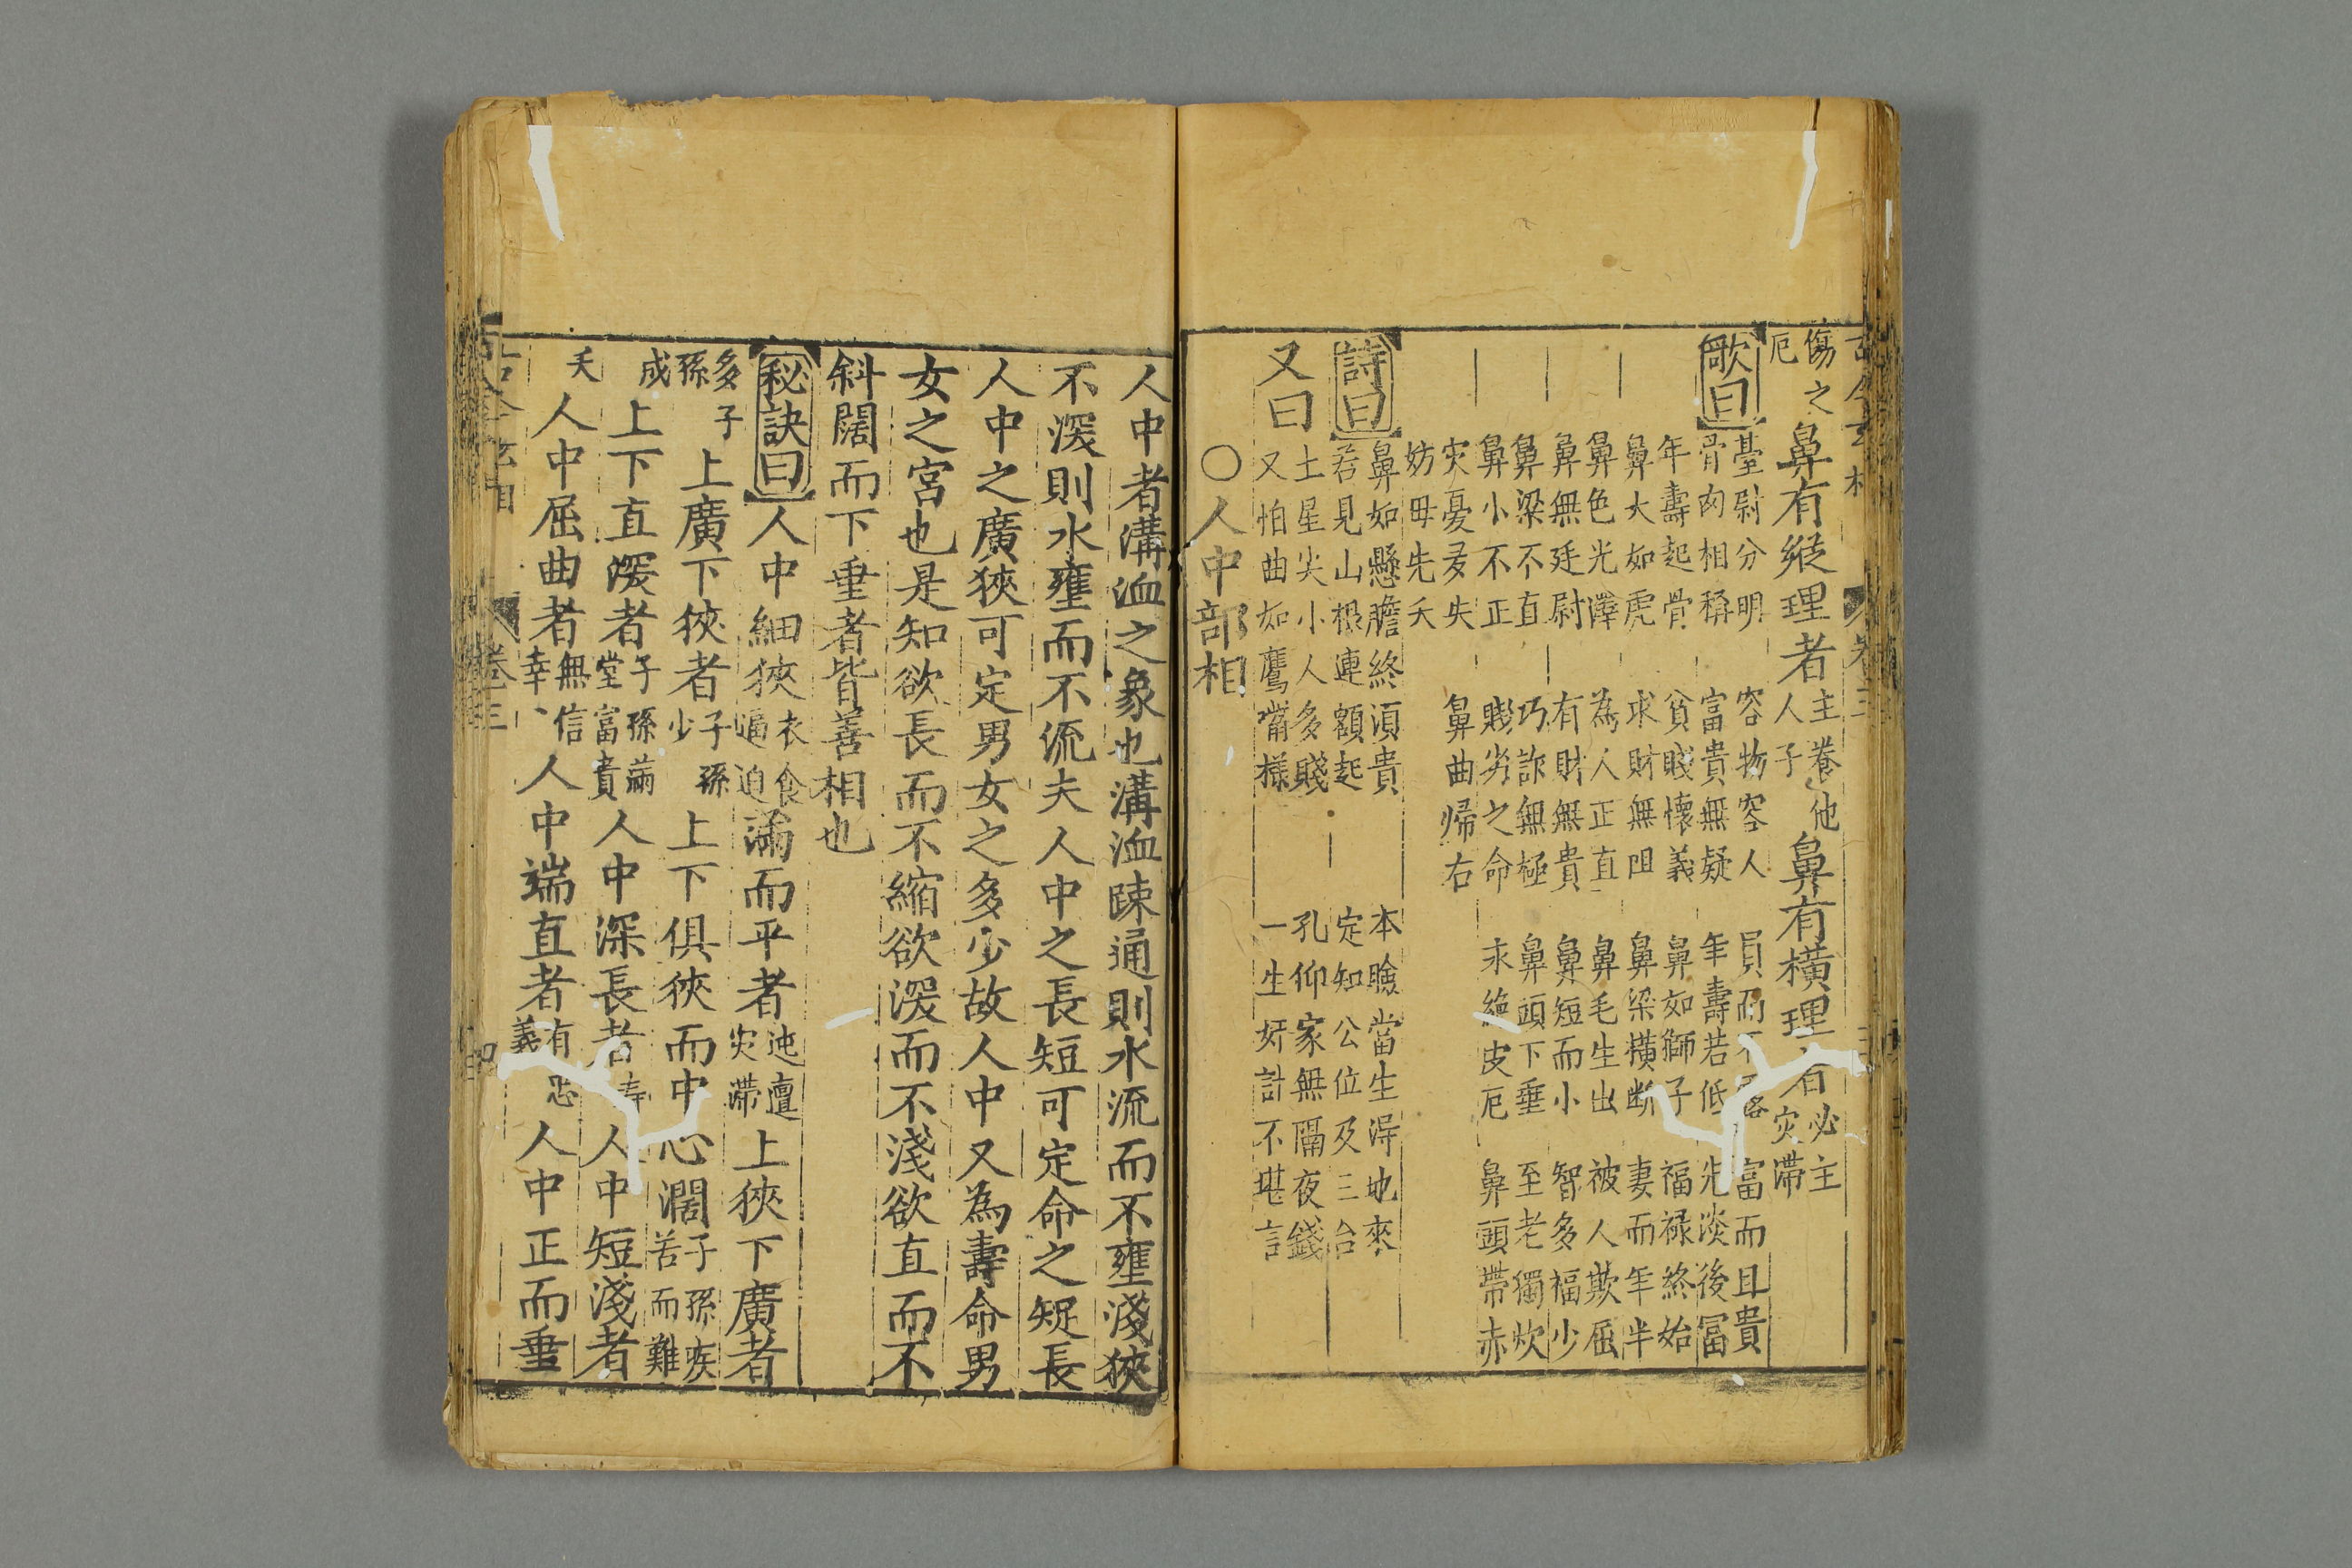 傷之
厄
鼻有縱理者
主養他
人子
鼻有橫理者
必主
灾滯
歌曰
臺尉分明 容物容人 富而且貴
骨肉相稱 富貴無疑 年壽若低 先淡後冨
年壽起骨 貧賤懷義 鼻如獅子 福禄終始
鼻大如虎 求財無阻 鼻梁橫断 妻而年半
鼻色光澤 為人正直 鼻毛生出 被人欺屈
鼻無廷尉 有財無貴 鼻短而小 智多福少
鼻梁不直 巧詐無極 鼻頭下垂 至老獨炊
鼻小不正 賤劣之命 絶皮厄 鼻頭帶赤
灾憂失 鼻曲㱕右
妨母先夭
詩曰
鼻如懸膽終須貴 本瞼當生得地來
若見山根連額起 定知公位及三台
又曰
土星尖小人多賤 孔仰家無隔夜錢
又怕曲如鷹嘴樣 一生奸計不堪言
○人中部相
人中者溝洫之象也溝洫踈通則水流而不壅淺狹
不深則水壅而不流夫人中之長短可定命之短長
人中之廣狹可定男女之多少故人中又為壽命男
女之宮也是知欲長而不縮欲深而不淺欲直而不
斜闊而下垂者皆善相也
秘訣曰
人中細狹
衣食
逼迫
滿而平者
迍邅
灾滯
上狹下廣者
多子
孫
上廣下狹者
子孫
少
上下俱狹而中心濶
子孫疾
苦而難
成
上下直深者
子孫滿
堂富貴
人中深長者
壽
人中短淺者
夭
人中屈曲者
無信
幸
人中端直者
有忠
義
人中正而垂
卷三